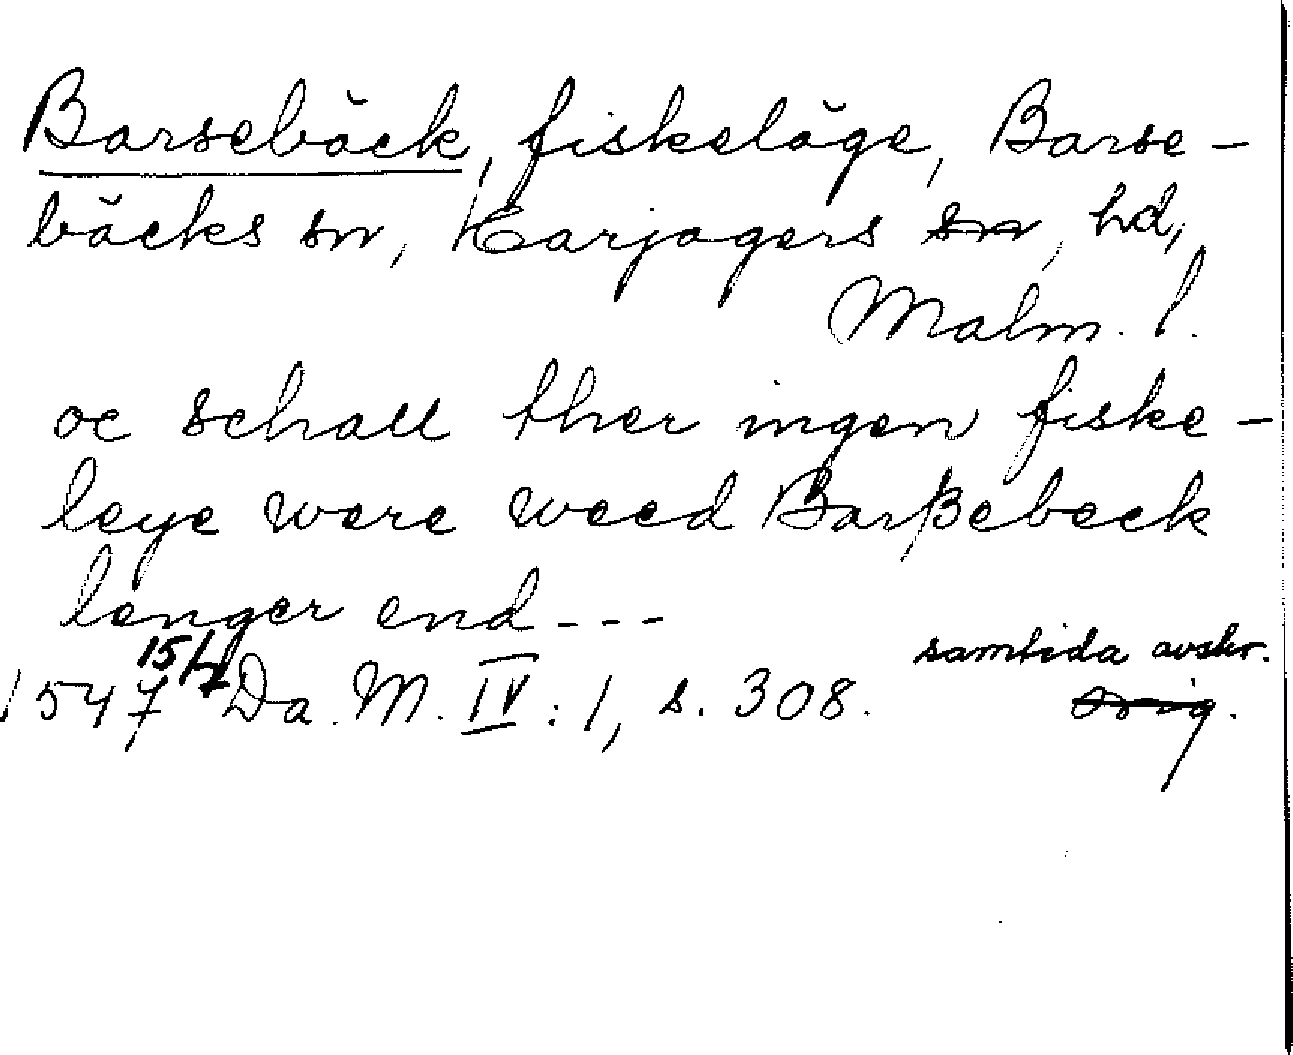 Barsebäck, fiskeläge, Barse-
bäcks sn, Harjagers sn, hd,
Malm. l.
oc schall ther ingen fiske-
leye were weed Barßebeck
lenger end ---
samtida avskr.
1547 15/7 Da. M. IV : 1, s. 308. orig.